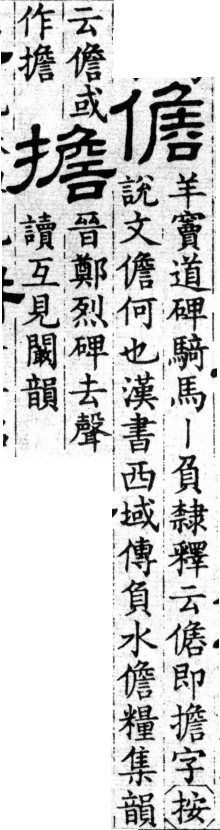 儋
羊竇道碑騎馬｜負隸釋云儋即擔字按
說文儋何也漢書西域傳負水儋糧集韻
云儋或
作擔
擔
晉鄭烈碑去聲
讀互見闞韻